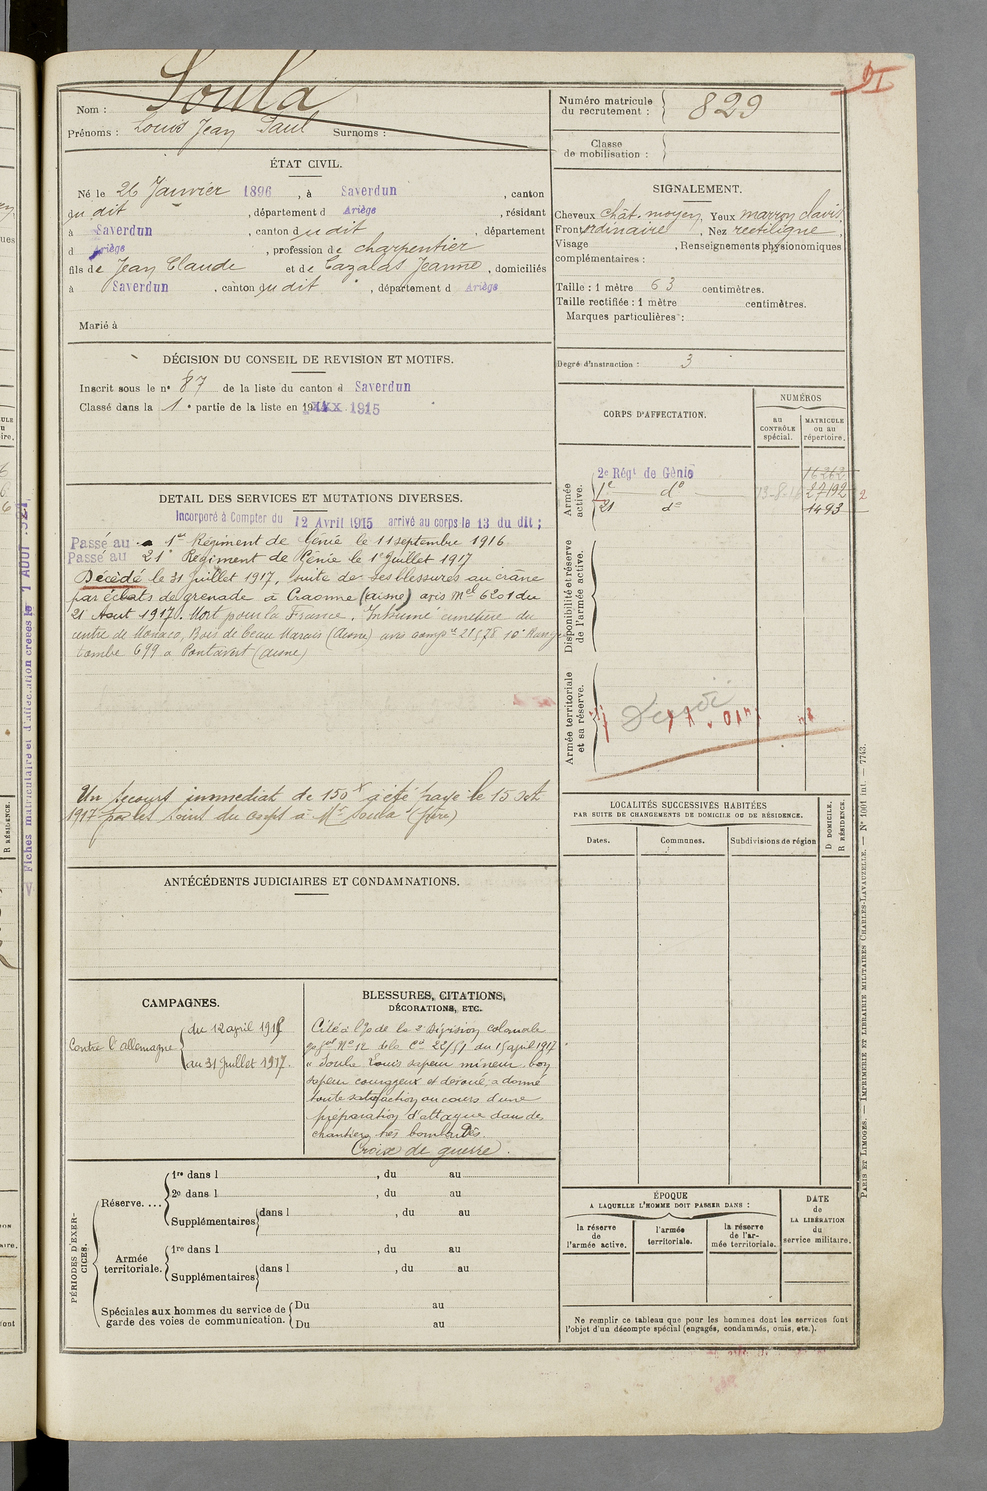 Nom : Soula
Prénoms : Louis Jean Paul Surnoms :
ÉTAT CIVIL.
Né le 26 Janvier 1896, à Saverdun, canton
du dit, département d Ariège, résidant
à Saverdun, canton du dit, département
d Ariège, profession de charpentier
fils de Jean Claude et de Cazalas Jeanne, domiciliés
à Saverdun, canton du dit, département d Ariège
Marié à
DÉCISION DU CONSEIL DE REVISION ET MOTIFS.
Inscrit sous le n° 87 de la liste du canton d Saverdun
Classé dans la 1e partie de la liste en 19 1915
DETAIL DES SERVICES ET MUTATIONS DIVERSES.
Incorporé à Compter du 12 Avril 1915 arrivé au corps le 13 du dit ;
Passé au 1er Régiment de Génie le 11 septembre 1916
Passé au 21e Régiment de Génie le 1er Juillet 1917
Décédé le 31 Juillet 1917, suite de ses blessures au crâne
par éclats de grenade à Craonne (Aisne) avis mel 6201 du
21 Aout 1917. Mort pour la France. Inhumé cimetière du
centre de Monaco, Bois de Beau Marais (Aisne)
tombe 699 a Pontavert (Aisne)
Un secours immédiat de 150 X a été payé le 15 Oct
1917 par les soins du corps à Mr Soula (père)
ANTÉCÉDENTS JUDICIAIRES ET CONDAMNATIONS.
CAMPAGNES.
Contre l'allemagne
du 12 april 1915
au 31 Juillet 1917.
BLESSURES, CITATIONS,
DÉCORATIONS, ETC.
Cité à l'O de la 2e Division coloniale
No 12 de la Cie 22/51 du 15 april 1917
« Soula Louis sapeur mineur bon
sapeur courageux et dévoué, a donné
toute satisfaction au cours d'une
préparation d'attaque dans des
chantiers très bombardés.
Croix de guerre.
PÉRIODES D'EXERCICES.
Réserve....
1re dans l , du au
2e dans l , du au
Supplémentaires dans l , du au
Armée territoriale.
1re dans l , du au
Supplémentaires dans l , du au
Spéciales aux hommes du service de garde des voies de communication.
Du au
Du au
Numéro matricule du recrutement : 829
Classe de mobilisation :
SIGNALEMENT.
Cheveux chât. moyen, Yeux marron clairs
Front ordinaire, Nez rectiligne,
Visage , Renseignements physionomiques
complémentaires :
Taille : 1 mètre 63 centimètres.
Taille rectifiée : 1 mètre centimètres.
Marques particulières :
Degré d'instruction : 3
CORPS D'AFFECTATION.
NUMÉROS
au CONTRÔLE spécial.
MATRICULE ou au répertoire.
Armée active.
2e Régt de Génie 16262
1e do 27192
21 do 1493
Disponibilité et réserve de l'armée active.
Armée territoriale et sa réserve.
LOCALITÉS SUCCESSIVES HABITÉES
PAR SUITE DE CHANGEMENTS DE DOMICILE OU DE RÉSIDENCE.
Dates. Communes. Subdivisions de région
D DOMICILE.
R RÉSIDENCE.
ÉPOQUE
A LAQUELLE L'HOMME DOIT PASSER DANS :
la réserve de l'armée active.
l'armée territoriale.
la réserve de l'armée territoriale.
DATE de LA LIBÉRATION du service militaire.
Ne remplir ce tableau que pour les hommes dont les services font
l'objet d'un décompte spécial (engagés, condamnés, omis, etc.).
PARIS ET LIMOGES. — IMPRIMERIE ET LIBRAIRIE MILITAIRES CHARLES-LAVAUZELLE. — N° 1001 int. — 7743.